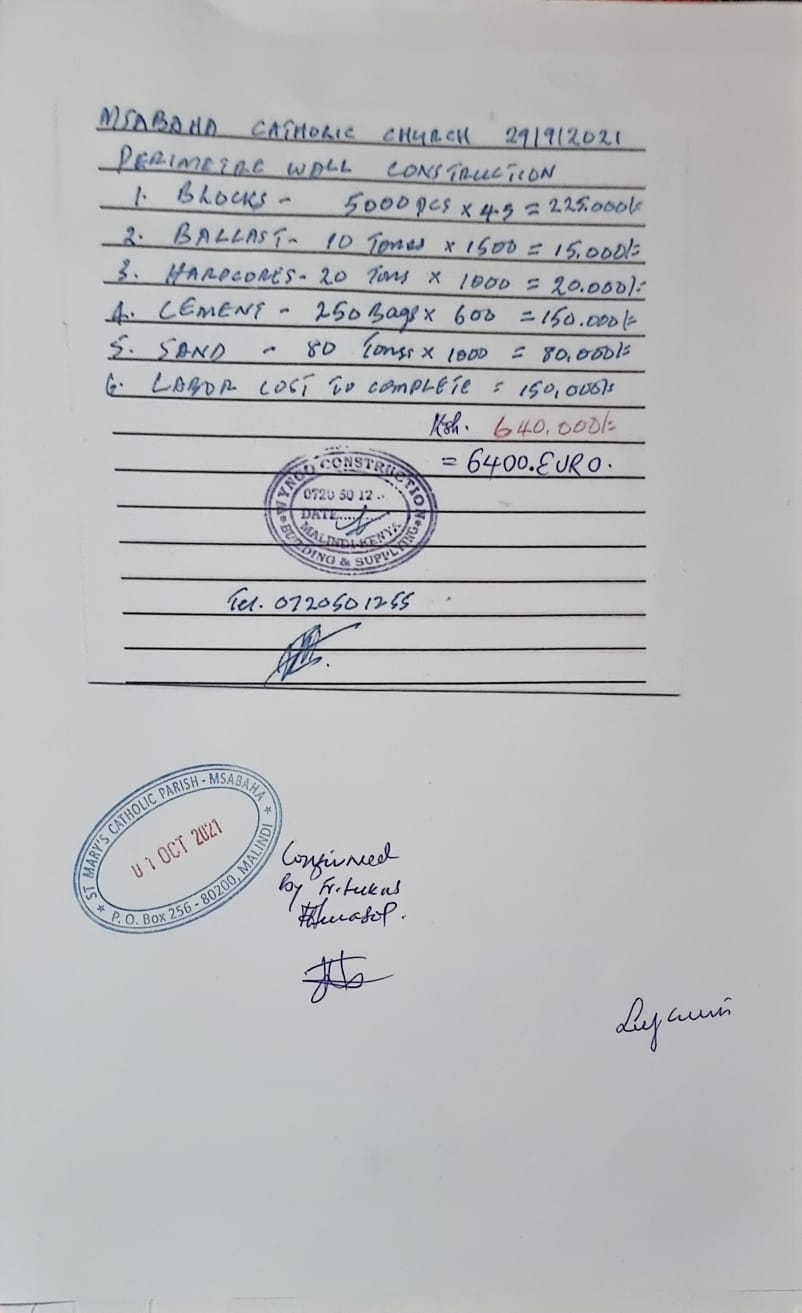 MSABAHA CATHOLIC CHURCH 29/9/2021
PERIMETRE WALL CONSTRUCTION
1. BLOCKS - 5000 pcs x 45 = 225.000/=
2. BALLAST - 10 Tones x 1500 = 15.000/=
3. HARDCORES - 20 Tons x 1000 = 20.000/=
4. CEMENT - 250 Bags x 600 = 150.000/=
5. SAND - 80 Tons x 1000 = 80,000/=
6. LABOR COST TO COMPLETE = 150,000/=
Ksh. 640.000/=
= 6400.EURO.
CONSTRUCTION
0720 50 12
DATE
MALINDI-KENYA
BUILDING & SUPPLYING
Tel. 0720501255
ST MARY'S CATHOLIC PARISH - MSABAHA
01 OCT 2021
P. O. Box 256 - 80200, MALINDI
Confirmed
by Fr. Lukas